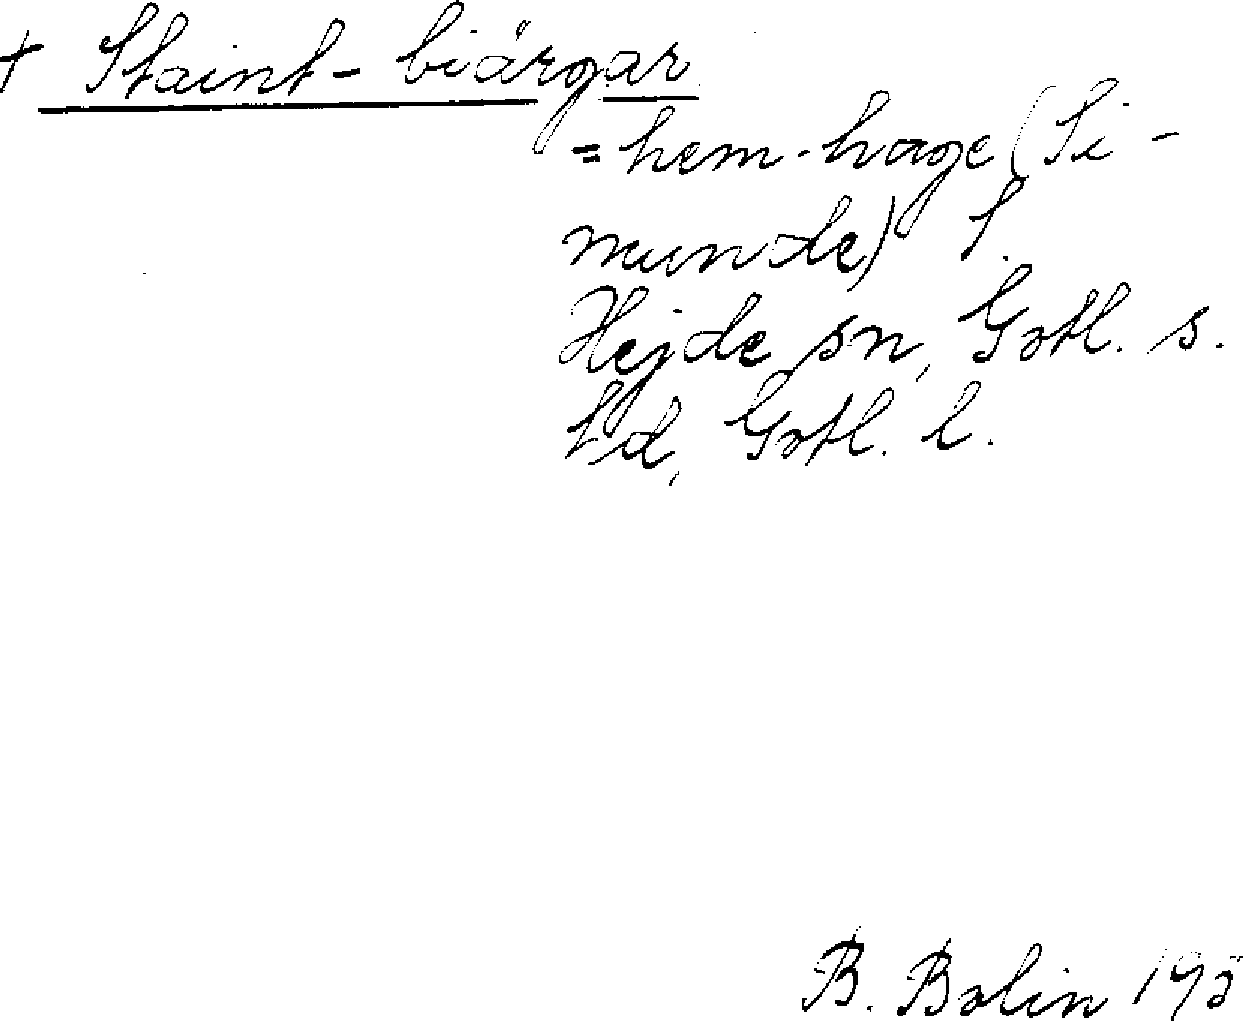 + Staint-biärgar
= hem-hage (Si-
munde) S.
Hejde sn, Gotl. s.
hd, Gotl. l.
B. Bolin 195